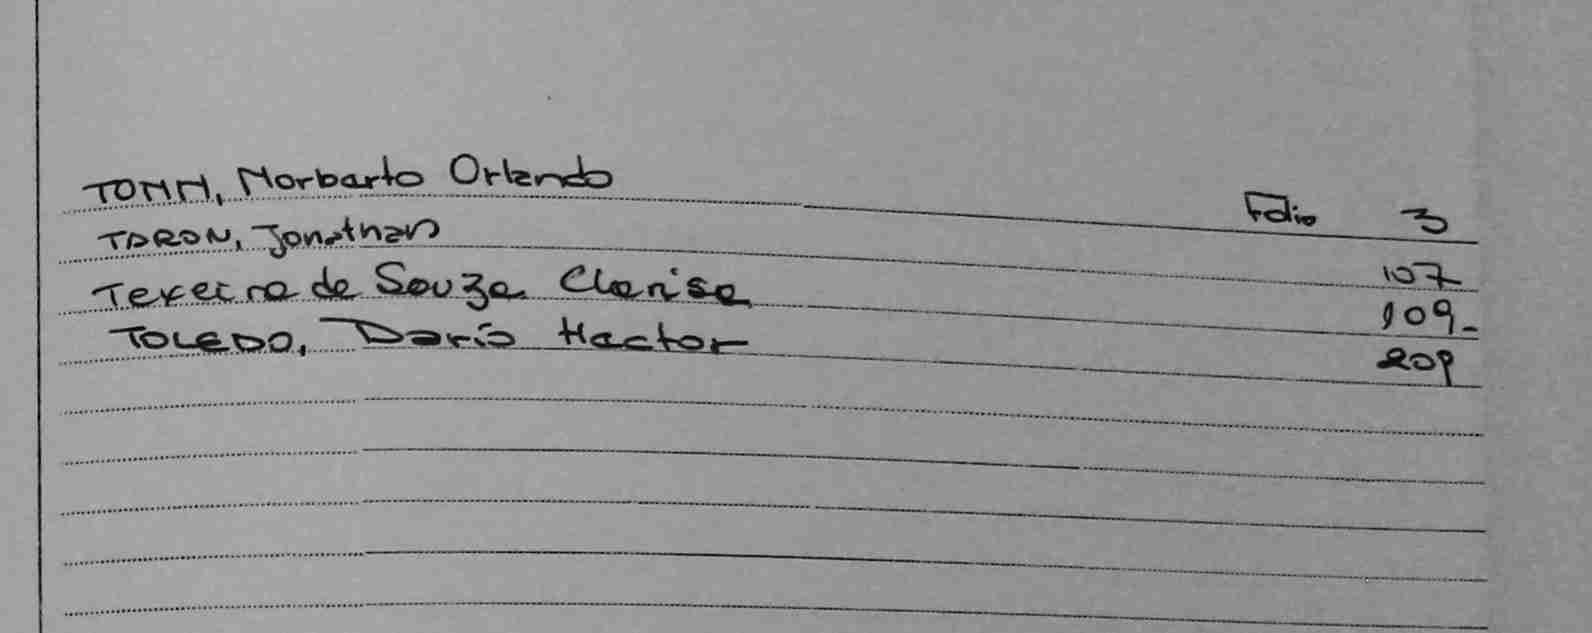 TOMM, Norberto Orlando Folio 3
TARON, Jonathan 107
Texeira de Souza Clarisa 109-
TOLEDO, Dario Hector 209